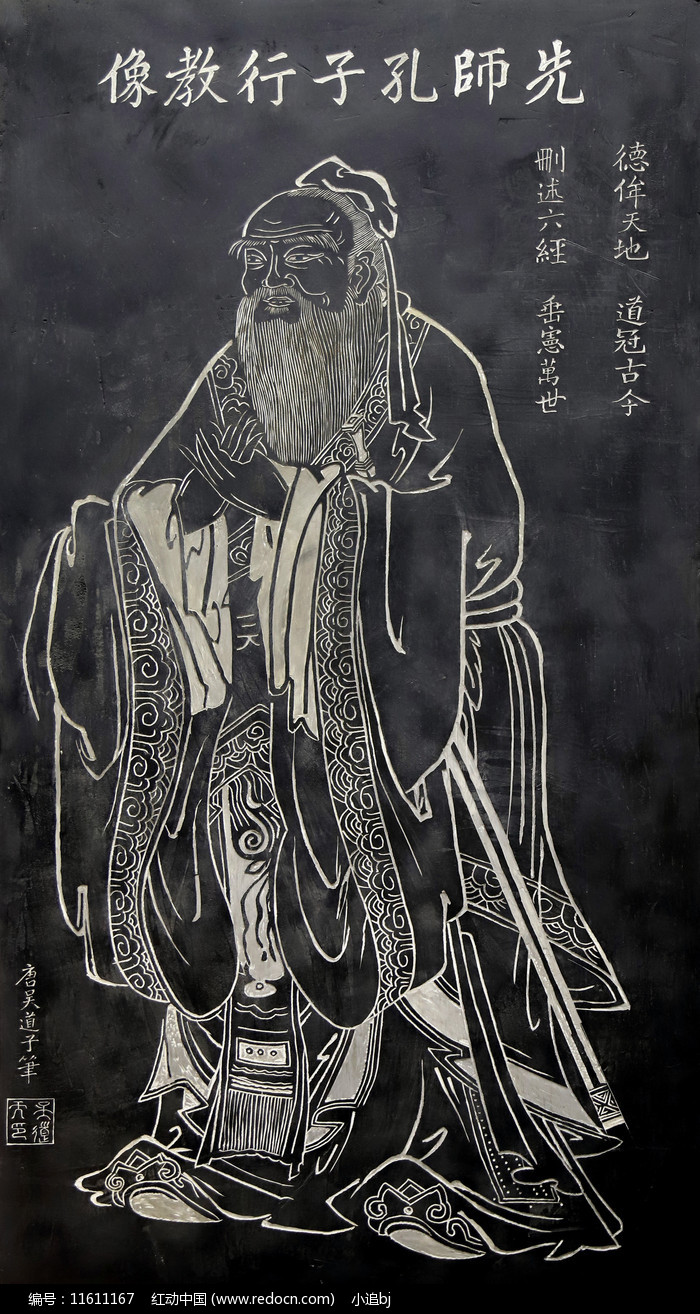 先師孔子行教像
德侔天地 道冠古今
刪述六經 垂憲萬世
唐吴道子筆
编号：11611167 红动中国 (www.redocn.com) 小追bj